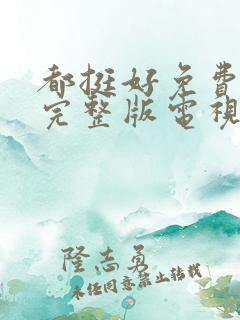 都挺好免费
完整版電視
隆志勇
未任同意禁止转载